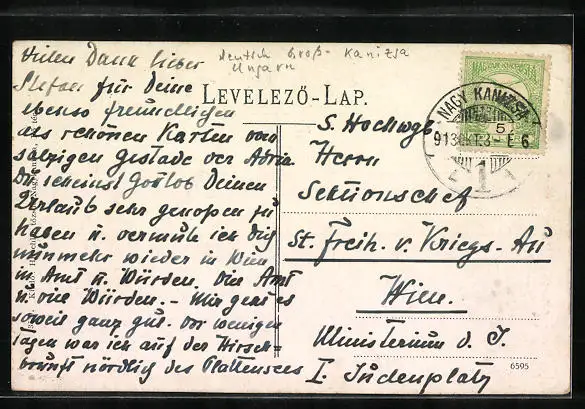 Deutsch Groß- Kanizsa
Ungarn
Vielen Dank lieber
Stefan für Deine
ebenso freundlichen
als schönen Karten vom
salzigen Gestade der Adria
Du scheinst Gottlob Deinen
Urlaub sehr genoßen zu
haben u. vermute ich Dich
nunmehr wieder in Wien
in Amt u. Würden. Die Amt
n. one Würden. – Mir geht es
soweit ganz gut. Vor wenigen
Tagen war ich auf der Hirsch-
brunft nördlich des Plattensees
LEVELEZŐ-LAP.
NAGY KANIZSA
5
913 OKT. 3 - E 6
1
S. Hochwgb.
Herrn
Sektionschef
St. Freih. v. Kriegs-Au
Wien.
Ministerium d. I.
I. Judenplatz
6595